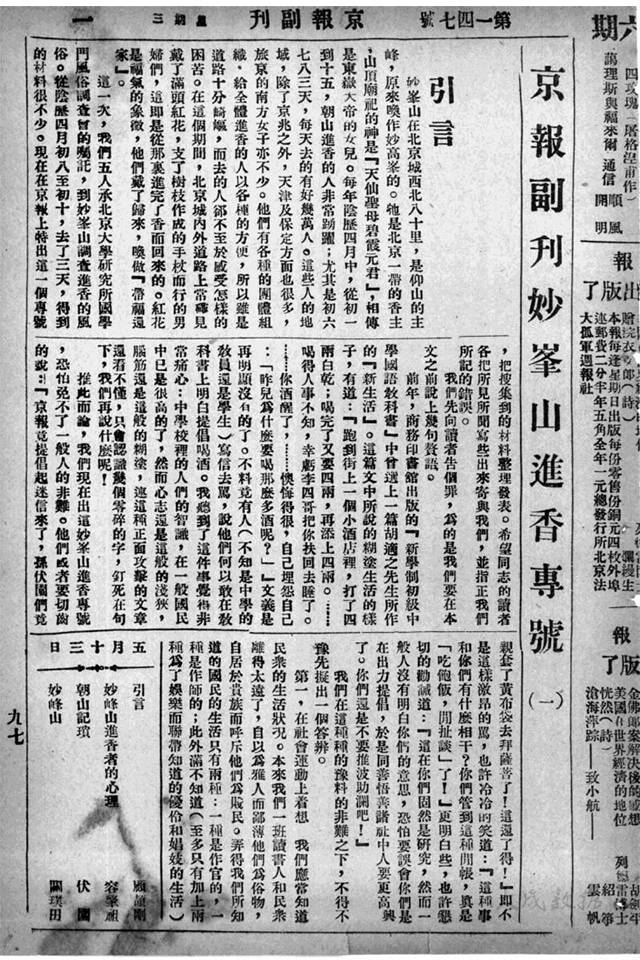 六期
四玫瑰(屠格涅甫作) 順風
萬理斯與福來爾 通信 開明
報
出版了
本報每逢星期日出版每份零售份銅元四枚外埠
連郵費二分半年五角全年一元總發行所北京法
大孤軍週報社
報
版了
金佛郎案解決後的感想
美國在世界經濟的地位
恍然(詩)
滄海萍踪——致小航——
雲帆
第一四七號 京報副刊 星期三 一
京報副刊妙峯山進香專號(一)
引言
妙峯山在北京城西北八十里,是仰山的主
峰,原來喚作妙高峯的。牠是北京一帶的香主
,山頂廟祀的神是『天仙聖母碧霞元君』,相傳
是東嶽大帝的女兒。每年陰歷四月中,從初一
到十五,朝山進香的人非常踴躍;尤其是初六
七八三天,每天去的有好幾萬人。這些人的地
域,除了京兆之外,天津及保定方面也很多,
旅京的南方女子亦不少。他們有各種的團體組
織,給全體進香的人以各種的方便,所以雖是
道路十分崎嶇,而去的人卻不至於感受怎樣的
困苦。在這個期間,北京城內外道路上常見
戴了滿頭紅花,支了樹枝作成的手杖而行的男
婦們,這即是從那裏進完了香而回來的。紅花
是福氣的象徵,他們戴了歸來,喚做『帶福還
家』。
這一次,我們五人承北京大學研究所國學
門風俗調查會的囑託,到妙峯山調查進香的風
俗。從陰歷四月初八至初十,去了三天,得到
的材料很不少。現在在京報上特出這一個專號
,把搜集到的材料整理發表。希望同志的讀者
各把所見所聞寫些出來寄與我們,並指正我們
所記的錯誤。
我們先向讀者告個罪,爲的是我們要在本
文之前說上幾句贅語。
前年,商務印書館出版的『新學制初級中
學國語教科書』中曾選上一篇胡適之先生所作
的『新生活』。這篇文中所說的糊塗生活的樣
子,有道:『跑到街上一個小酒店裡,打了四
兩白乾;喝完了又要四兩,再添上四兩。……
喝得人事不知,幸虧李四哥把你扶回去睡了。
……你酒醒了,……懊悔得很,自己埋怨自己
:「昨兒爲什麼要喝那麼多酒呢?」』文義是
再明顯沒有的了。不料竟有人(不知是中學的
教員還是學生)寫信去罵,說他們何以敢在教
科書上明白提倡喝酒。我聽到了這件事覺得非
常痛心:中學校裡的人們的智識,在一般國民
中已是很高的了,然而心志還是這般的淺狹,
腦筋還是這般的糊塗,連這種正面攻擊的文章
還看不懂,只會認識幾個零碎的字,釘死在句
下,我們再說什麼呢!
推此而論,我們現在出這妙峯山進香專號
,恐怕免不了一般人的非難。他們或者要切齒
的說:『京報竟提倡起迷信來了,孫伏園們竟
親套了黃布袋去拜薩菩了!這還了得!』即不
是這樣激昂的罵,也許冷冷的笑道:『這種事
和你們有什麼相干?你們管到這種閒帳,真是
「吃飽飯,閒扯談」了!』更明白些,也許懇
切的勸誡道:『這在你們固然是研究,然而一
般人沒有明白你們的意思,恐怕要誤會你們是
在出力提倡,於是同善悟善諸社中人要更高興
了。你們還是不要推波助瀾吧!』
我們在這種種的豫料的非難之下,不得不
豫先擬出一個答辨。
第一,在社會運動上着想 我們應當知道
民衆的生活狀況。本來我們一班讀書人和民衆
離得太遠了,自以爲雅人而鄙薄他們爲俗物,
自居於貴族而呼斥他們爲賤民。弄得我們所知
道的國民的生活只有兩種:一種是作官的,一
種是作師的;此外滿不知道(至多只有加上兩
種爲了娛樂而聯帶知道的優伶和娼妓的生活)
五月十三日
引言 顧頡剛
妙峰山進香者的心理 容肇祖
朝山記瑣 伏園
妙峰山 關璞田
九七